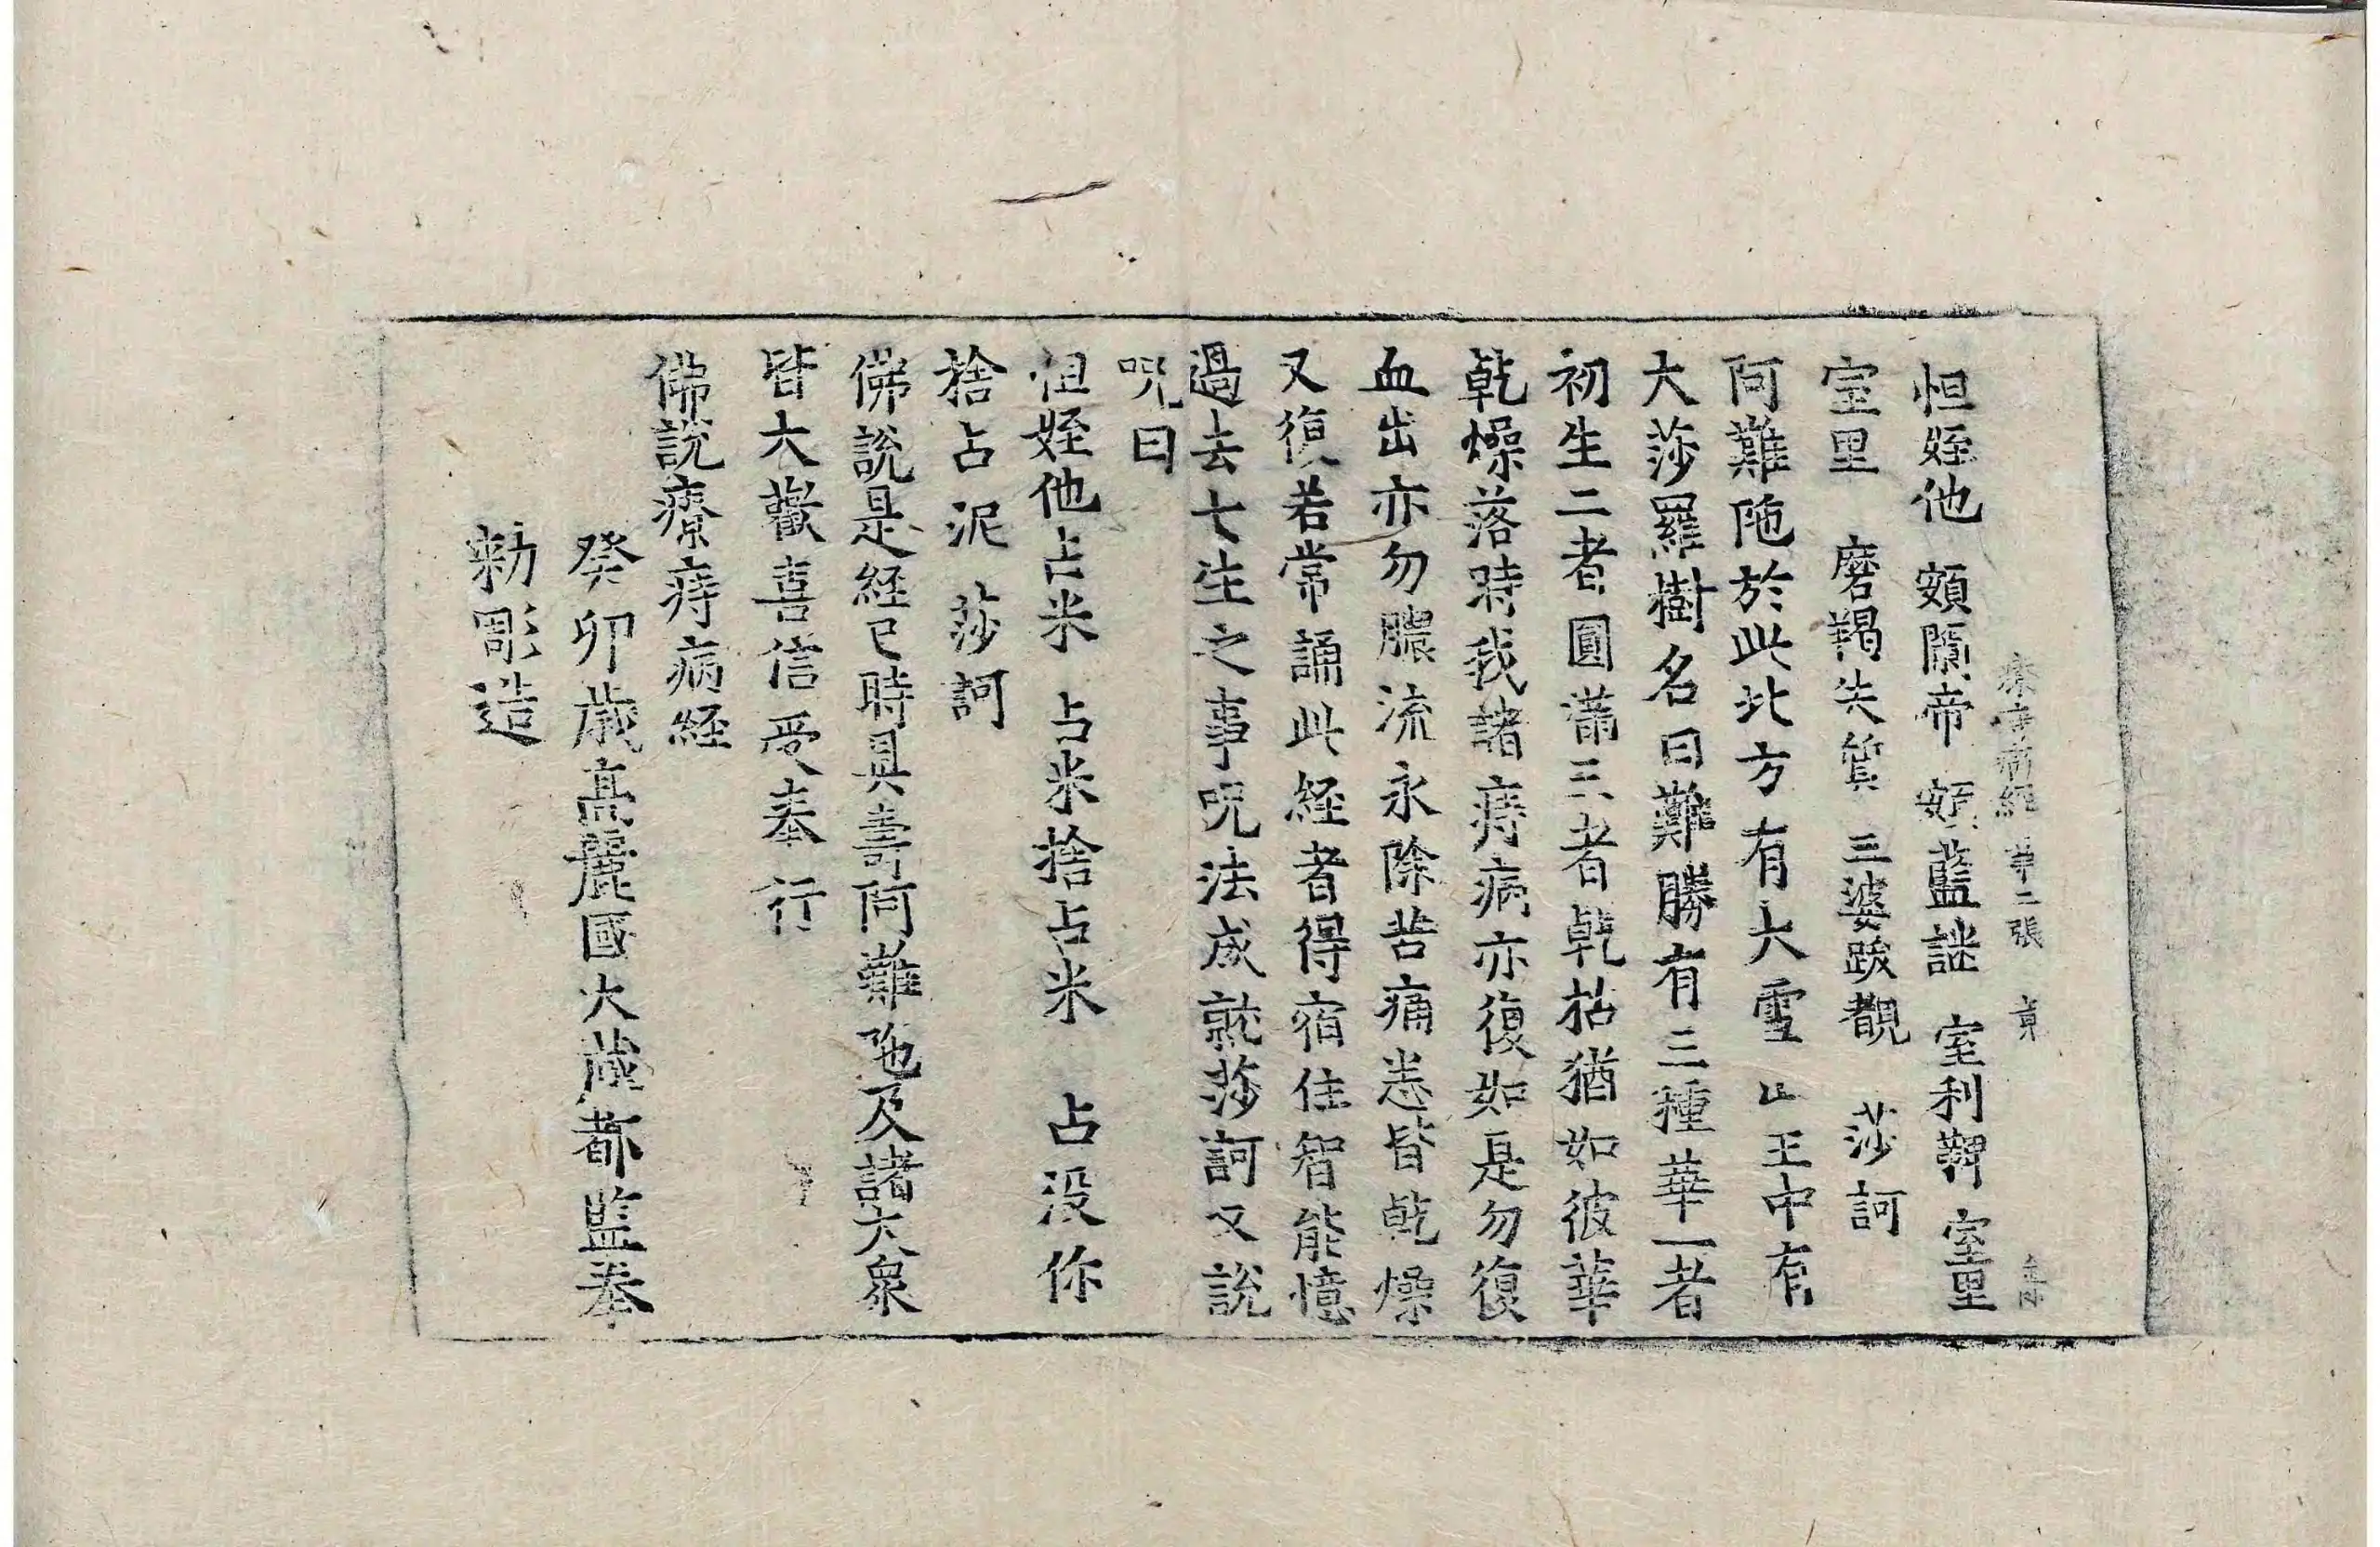 療痔病經 第二張 貢
怛姪他 頞闌帝 頞藍謎 室利鞞 室里
室里 磨羯失質 三婆跋覩 莎訶
阿難陁於此北方有大雪山王中有
大莎羅樹名曰難勝有三種華一者
初生二者圓滿三者乾枯猶如彼華
乾燥落時我諸痔病亦復如是勿復
血出亦勿膿流永除苦痛悉皆乾燥
又復若常誦此経者得宿住智能憶
過去七生之事呪法成就莎訶又說
呪曰
怛姪他占米 占米捨占米 占没你
捨占泥 莎訶
佛說是経已時具壽阿難陁及諸大衆
皆大歡喜信受奉行
佛說療痔病経
癸卯歳高麗國大藏都監奉
勑彫造